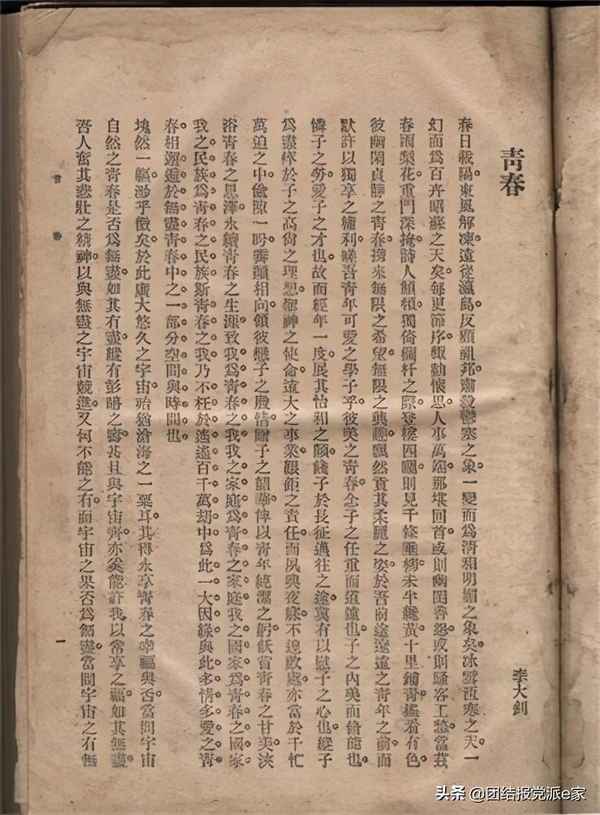 青春
李大釗
春日載陽。東風解凍。遠從瀛島。反顧祖邦。肅殺鬱塞之象。一變而爲清和明媚之象矣。冰雪沍寒之天。一
幻而爲百卉昭蘇之天矣。每更節序。輒動懷思。人事萬端。那堪回首。或則幽閨善怨。或則騷客工愁。當茲
春雨梨花。重門深掩。詩人憔悴。獨倚欄杆之際。登樓四顧。則見千條垂柳。未半纔黃。十里鋪青。遙看有色。
彼幽閒貞靜之青春。攜來無限之希望。無限之興趣。飄然貢其柔麗之姿。於吾前途遼遠之青年之前。而
默許以獨享之權利。嗟吾青年可愛之學子乎。彼美之青春。念子之任重而道遠也。子之內美而修能也。
憐子之勞。愛子之才也。故而經年一度。展其怡和之顏。餞子於長征邁往之途。冀有以慰子之心也。縱子
爲盡瘁於子之高尚之理想。聖神之使命。遠大之事業。艱鉅之責任。而夙興夜寐。不遑啟處。亦當於千忙
萬迫之中。偷隙一盼。霽顏相向。領彼戀子之殷情。贈子之韶華。俾以青年純潔之躬。飫嘗青春之甘美。浹
浴青春之恩澤。永續青春之生涯。致我爲青春之我。我之家庭爲青春之家庭。我之國家爲青春之國家。
我之民族爲青春之民族。斯青春之我。乃不枉於遙遙百千萬劫中。爲此一大因緣。與此多情多愛之青
春。相邂逅於無盡青春中之一部分空間與時間也
塊然一軀。渺乎微矣。於此廣大悠久之宇宙。殆猶滄海之一粟耳。其得永享青春之幸福與否。當問宇宙
自然之青春是否爲無盡。如其有盡。縱有彭聃之壽。甚且與宇宙齊。亦奚能許我以常享之福。如其無盡。
吾人奮其悲壯之精神。以與無盡之宇宙競進。又何不能之有。而宇宙之果否爲無盡。當問宇宙之有無
青春
一
头条 @团结报党派e家